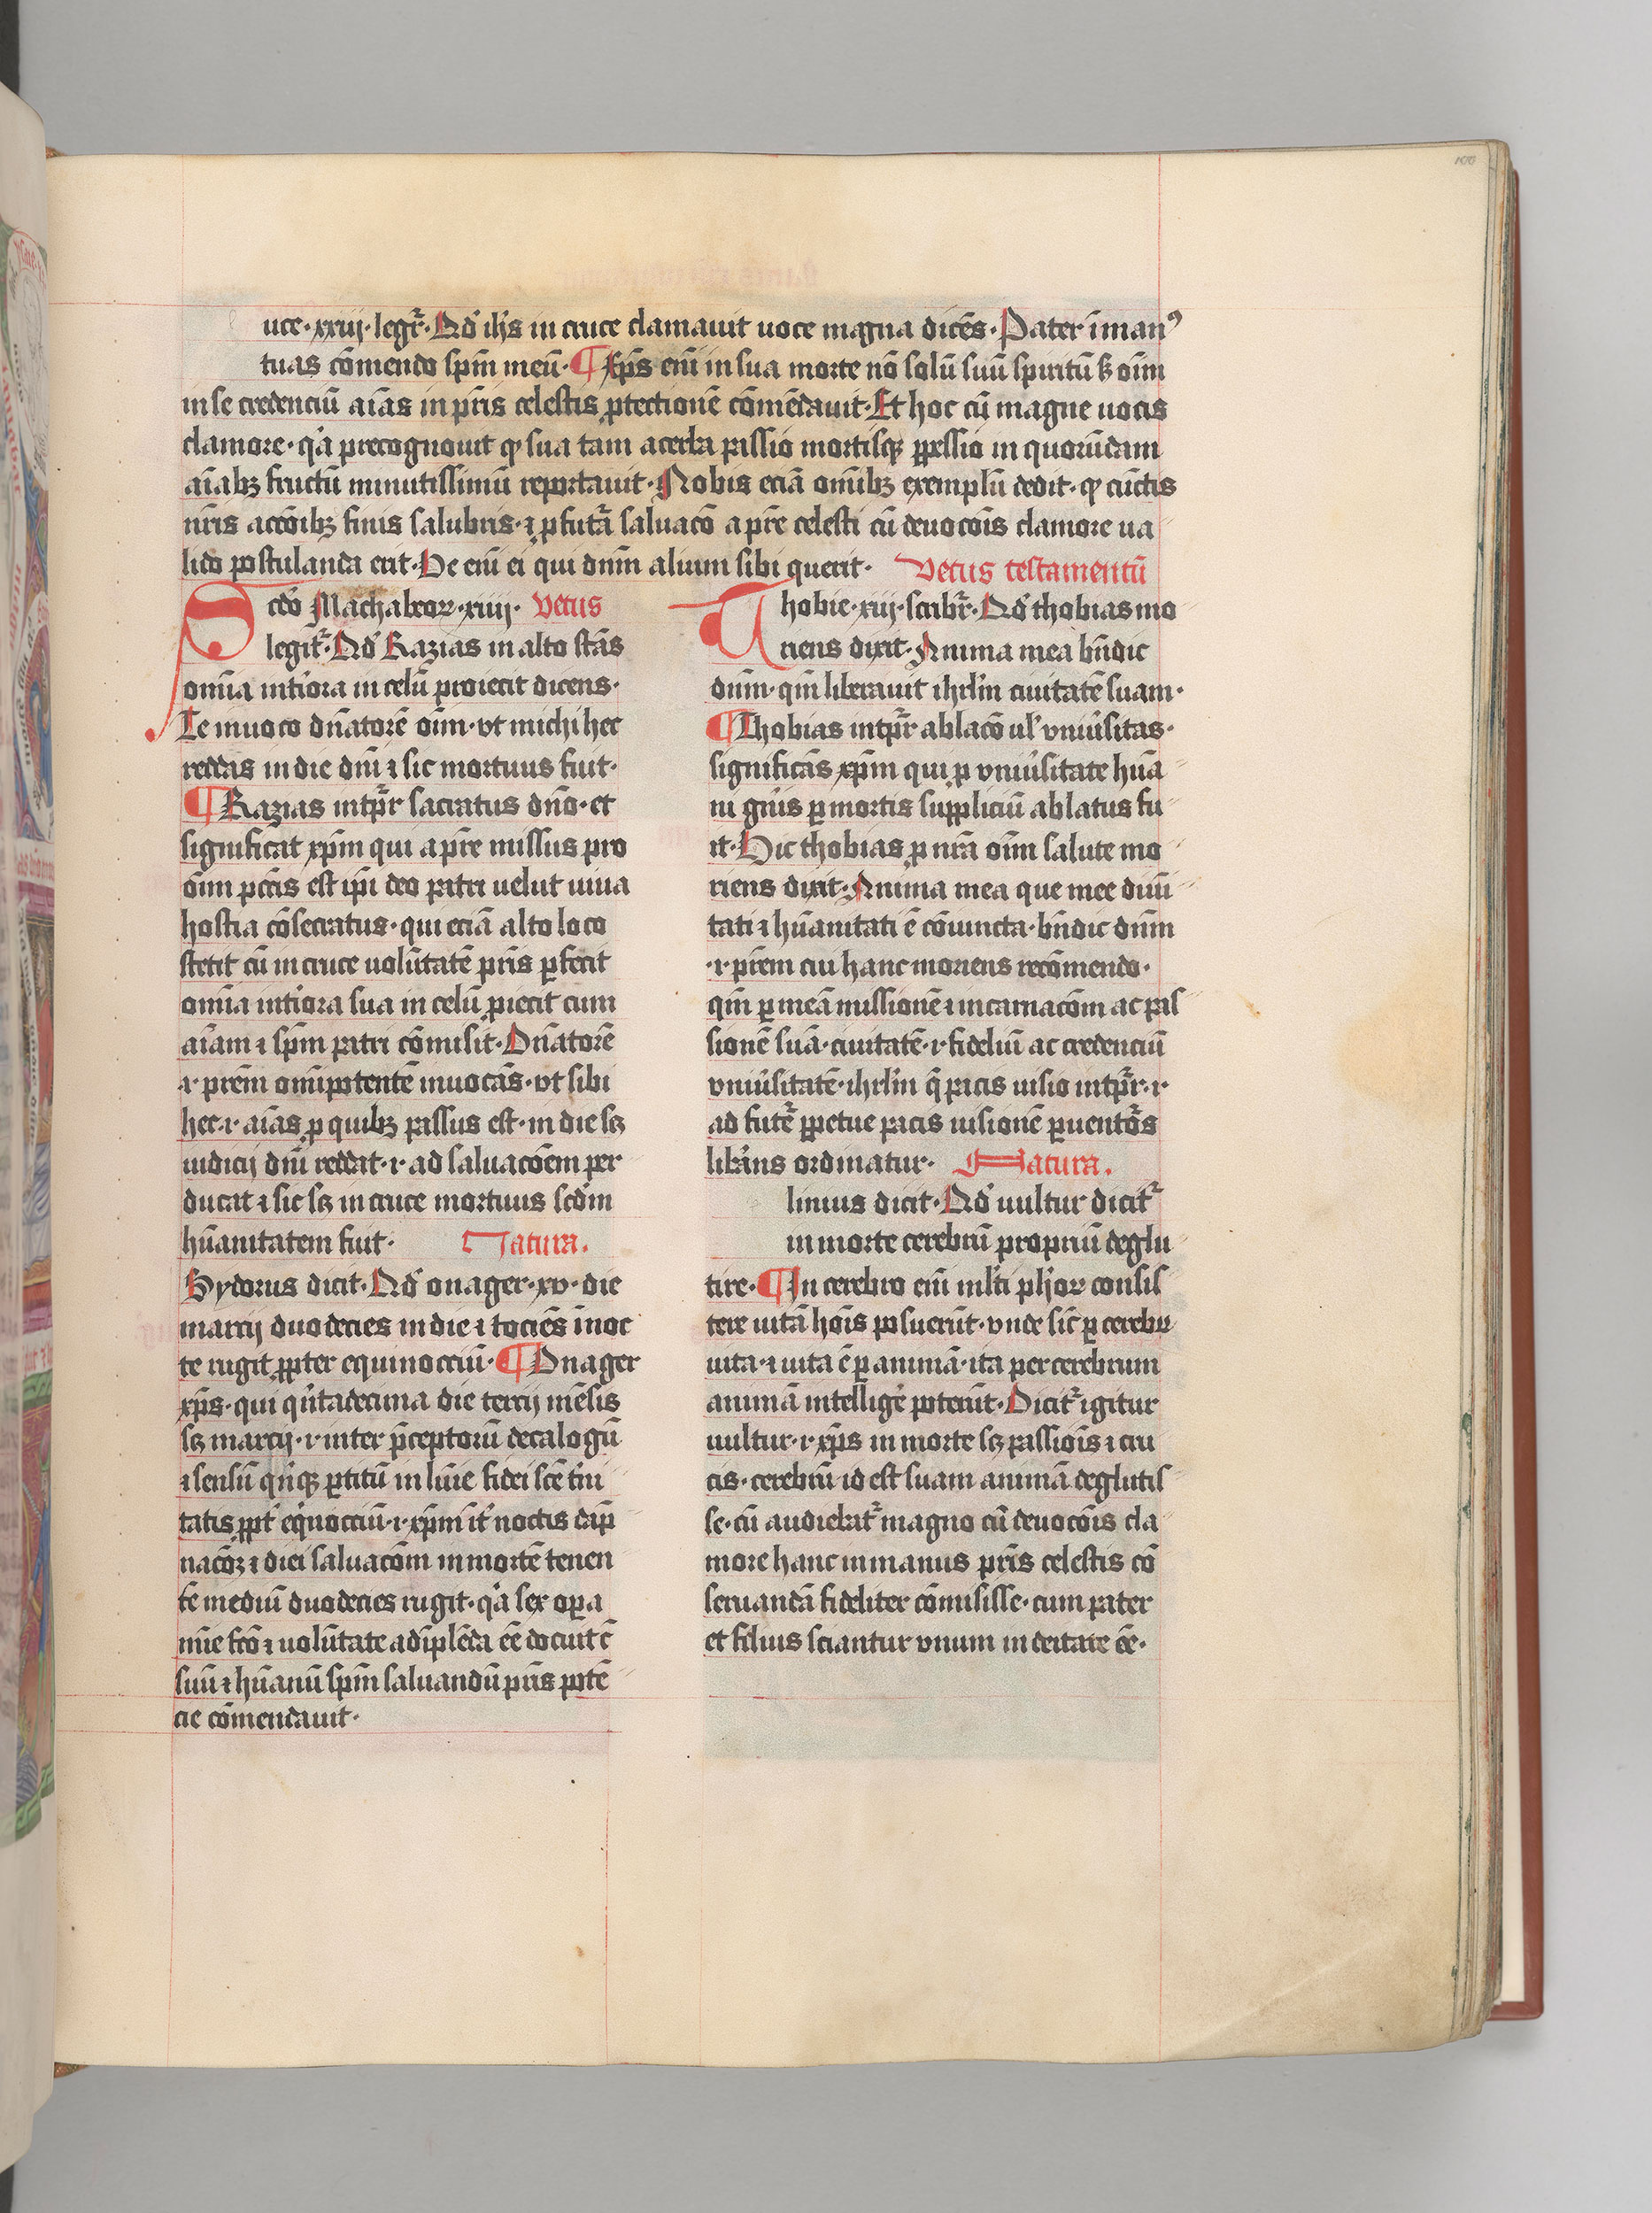 uce·xxiij·legr̄·Qd̓ ih̄s in cruce clamauit uoce magna dicēs·Pater ī manꝰ
tuas cōmendo spm̄ meū·¶xp̄s em̄ in sua morte nō solū suū spiritū sꝫ oīm
in se credenciū aīas in pr̄is celestis ꝓtectionē cōmēdauit·Et hoc cū magne uocis
clamore·qͥa precognouit ꝙ sua tam acerba passio mortisqꝫ ꝑpessio in quorūdam
aīabꝫ fructū minutissimū reportauit·Nobis eciā omībꝫ exemplū dedit·ꝙ cūctis
nr̄is accōibꝫ finis salubris·⁊ ꝓ futr̄a saluacō a pr̄e celesti cū deuocōis clamore ua
lido postulanda erit·Ve em̄ ei qui dnm̄ alium sibi querit·
Scd̓o Machabeoꝝ·xiiij· Vetus
legit̄·Qd̓ Razias in alto stās
omīa int̓iora in celū proiecit dicens·
Te inuoco dn̄atorē oīm·vt michi hec
reddas in die dnī ⁊ sic mortuus fuit·
¶Razias intp̄r sacratus dn̄o·et
significat xp̄m qui a pr̄e missus pro
oīm pctīs est ip̄i deo patri uelut uiua
hostia cōsecratus·qui eciā alto loco
stetit cū in cruce uolūtatē pr̄is ꝑfecit
omīa int̓iora sua in celū ꝓiecit cum
aīam ⁊ spm̄ patri cōmisit·Dn̄atorē
·i·prēm omīpotentē inuocās·vt sibi
hec·i·aīas ꝓ quibꝫ passus est·in die sꝫ
iudicij dnī reddat·i·ad saluacōem per
ducat ⁊ sic sꝫ in cruce mortuus scdm̄
hūanitatem fuit· Natura.
Hydorus dicit·Qd̓ onager·xv·die
marcij duodecies in die ⁊ tociēs ī noc
te rugit ꝓpter equinocciū·¶Onager
xp̄s·qui qͥntadecima die tercij mēsis
sꝫ marcij·i·inter p̄ceptorū decalogū
⁊ sensū qͥnqꝫ ꝑtitū in lūie fidei scē tͥni
tatis ꝓpt̓ eqͥnocciū·i·xp̄m it̓ noctis dāp
nacōꝝ ⁊ diei saluacōm in mortē tenen
tē mediū duodecies rugit·qͥa sex oꝑa
mīe fcō ⁊ uolūtate adīplēda eē docuit ⁊
suū ⁊ hūanū spm̄ saluandū pr̄is potē
cie cōmendauit·
Vetus testamentū
Thobie·xiij·scribr̄·Qd̓ thobias mo
riens dixit·Anima mea bn̄dic
dnm̄·qm̄ liberauit ihrl̄m ciuitatē suam·
¶Thobias intp̄r ablacō ul̓ vniu̓sitas·
significās xp̄m qui ꝓ vniu̓sitate hūa
ni gn̄is ꝑ mortis suppliciū ablatus fu
it·Hic thobias ꝓ nr̄a oīm salute mo
riens dixit·Anima mea que mee diuī
tati ⁊ hūanitati ē cōiuncta·bn̄dic dnm̄
·i·prēm cui hanc moriens recōmendo·
qm̄ ꝑ meā missionē ⁊ incarnacōm ac pas
sionē suā·ciuitatē·i·fideliū ac credenciū
vniu̓sitatē·ihrl̄m q̄ pacis uisio intp̄r·i·
ad futr̄e ꝑpetue pacis uisionē ꝑuentōrs
lib̓ans ordinatur· Natura.
linius dicit·Qd̓ uultur dicit̄
in morte cerebrū propriū deglu
tire·¶In cerebro em̄ ml̓ti ph̓joꝝ consis
tere uitā hoīs posuerūt·vnde sic̄ ꝑ cerebrū
uita·⁊ uita ē ꝑ animā·ita per cerebrum
animā intellige̓ poterūt·Dicit̄ igitur
uultur·i·xp̄s in morte sꝫ passiōis ⁊ cru
cis·cerebrū id est suam animā deglutis
se·cū audiebat̄ magno cū deuocōis cla
more hanc in manus pr̄is celestis cō
seruandā fideliter cōmisisse·cum pater
et filius sciantur vnum in deitate eē·